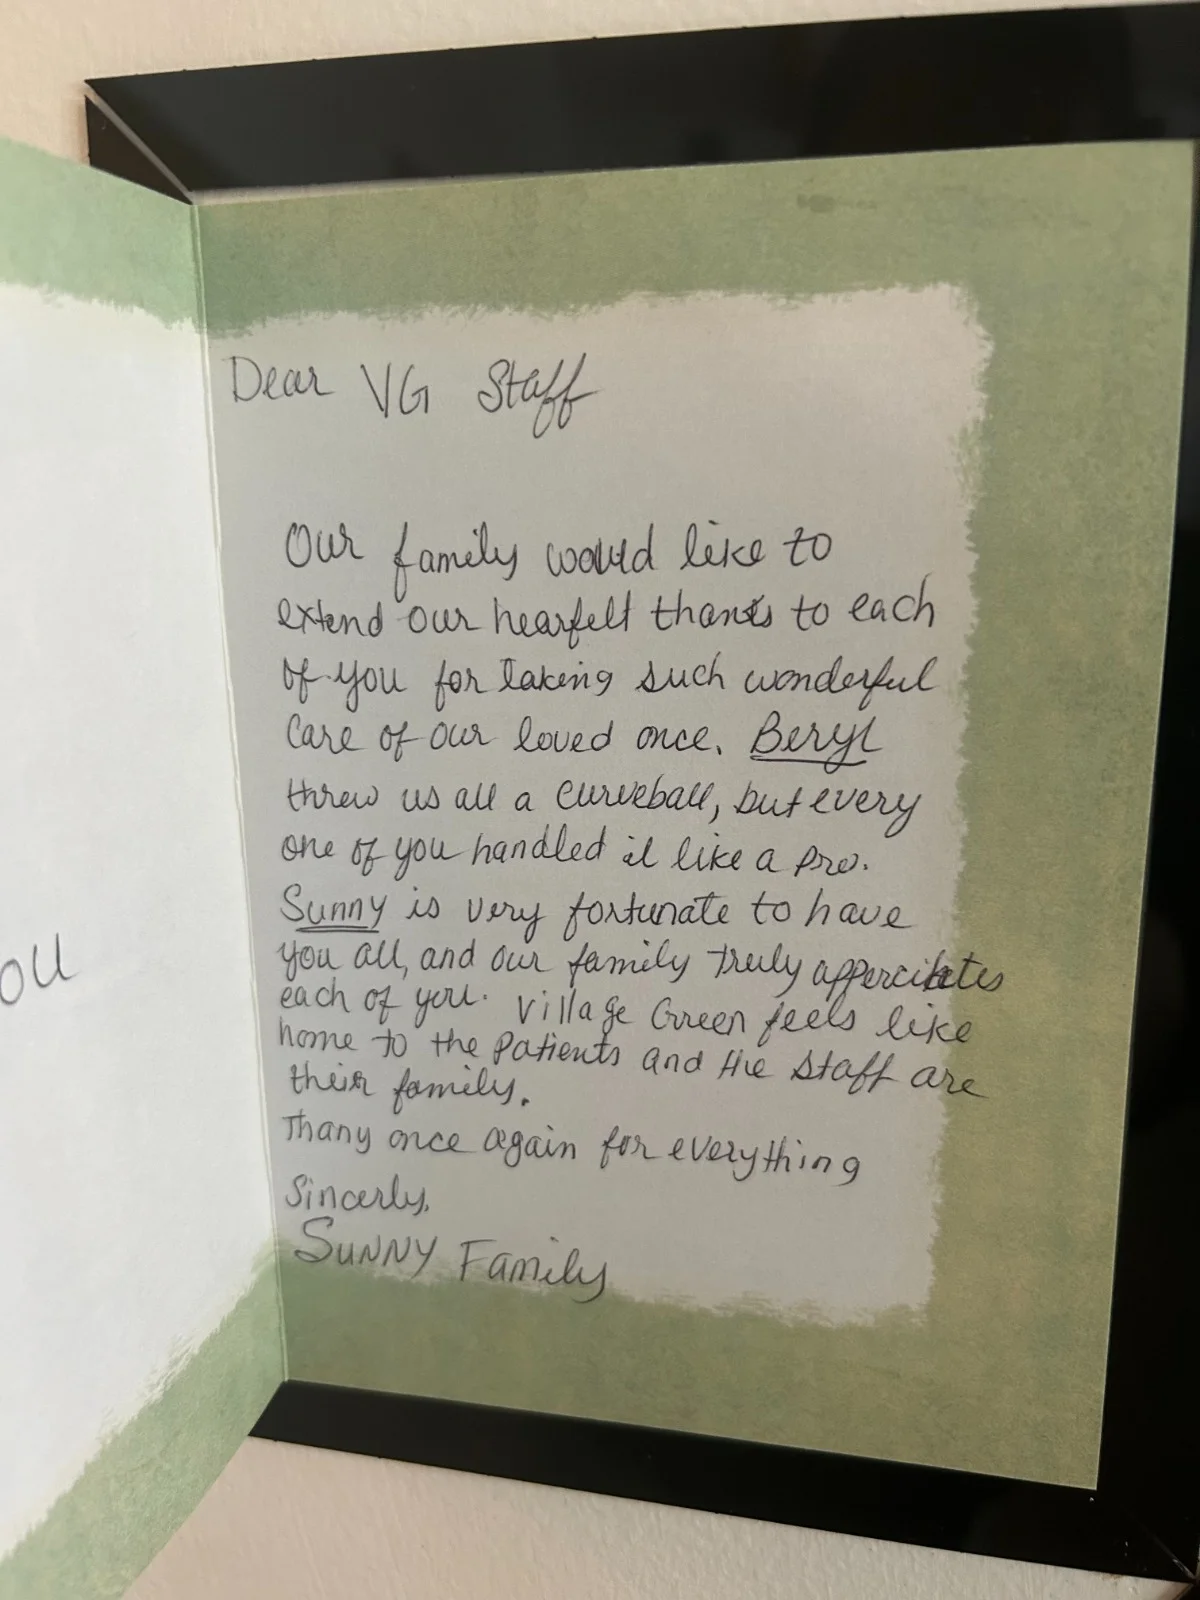 ou
Dear VG Staff
Our family would like to
extend our hearfelt thanks to each
of you for taking such wonderful
Care of our loved once. Beryl
threw us all a curveball, but every
one of you handled it like a pro.
Sunny is very fortunate to have
you all, and our family truly apperciates
each of you. Village Green feels like
home to the Patients and the staff are
their family.
Thany once again for everything
Sincerly,
SUNNY Family